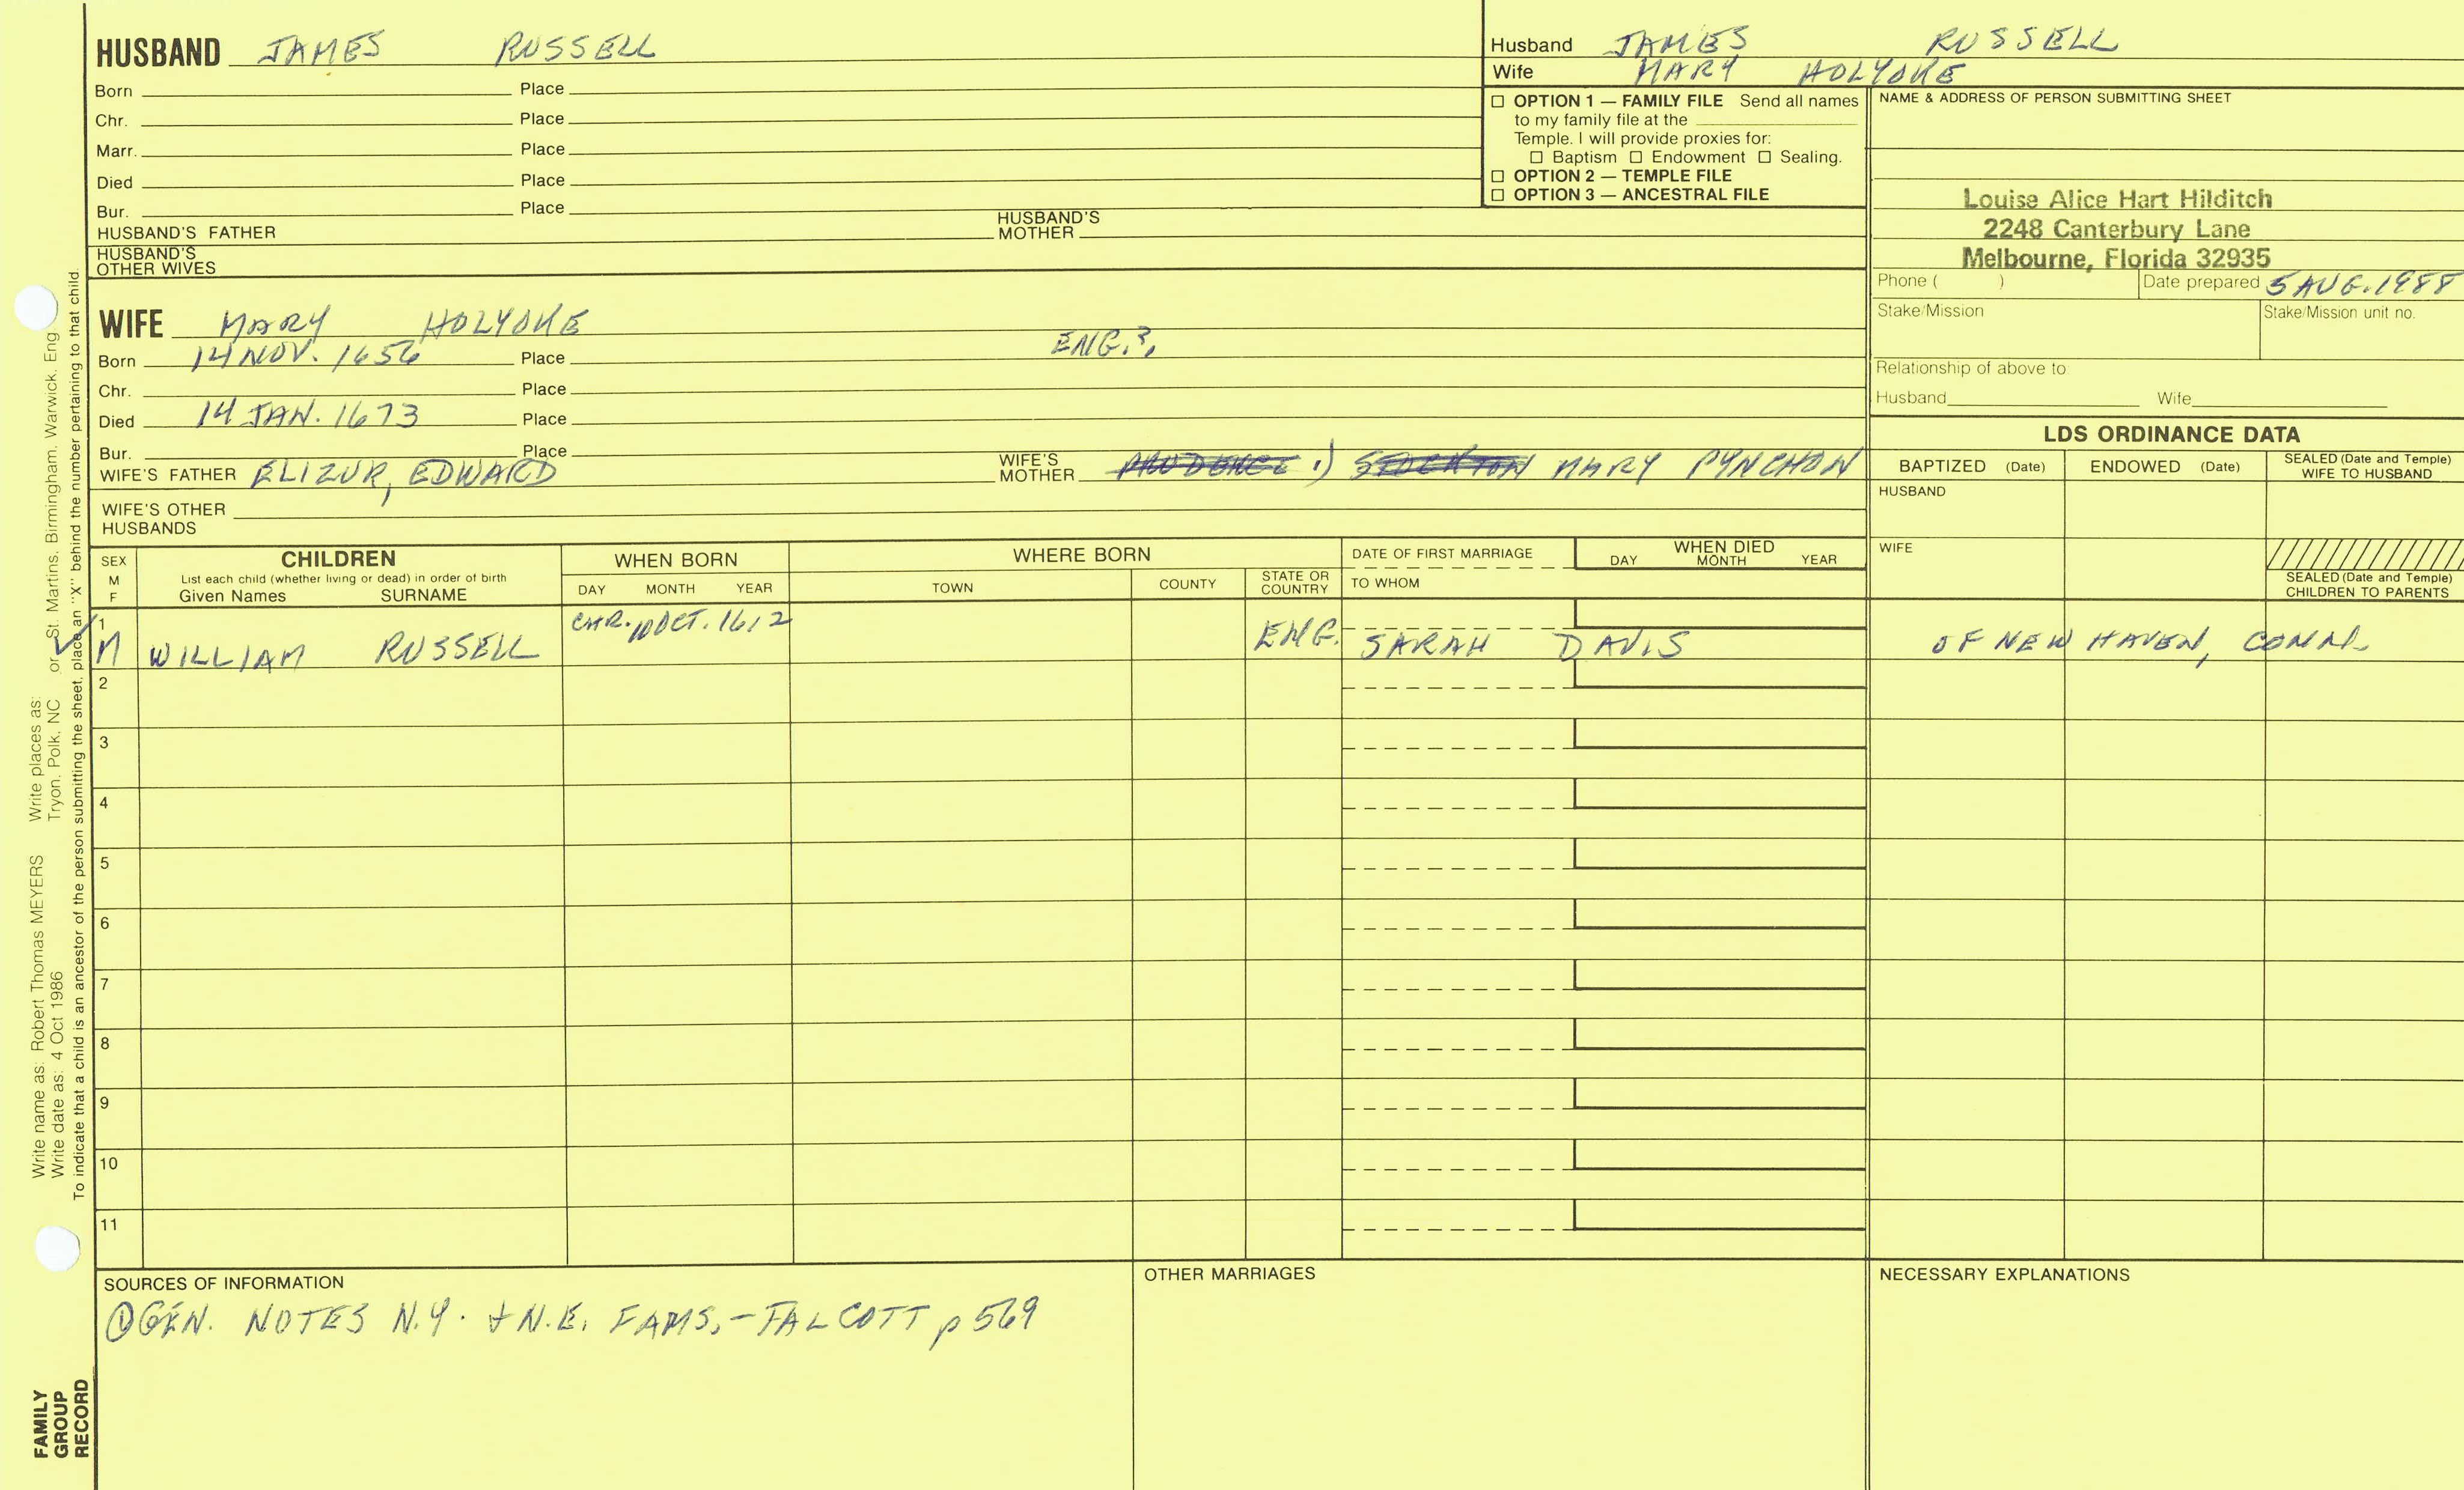 HUSBAND JAMES RUSSELL
Born Place
Chr. Place
Marr. Place
Died Place
Bur. Place
HUSBAND'S FATHER HUSBAND'S MOTHER
HUSBAND'S OTHER WIVES
Husband JAMES RUSSELL
Wife MARY HOLYOKE
☐ OPTION 1 — FAMILY FILE Send all names
to my family file at the
Temple. I will provide proxies for:
☐ Baptism ☐ Endowment ☐ Sealing.
☐ OPTION 2 — TEMPLE FILE
☐ OPTION 3 — ANCESTRAL FILE
NAME & ADDRESS OF PERSON SUBMITTING SHEET
Louise Alice Hart Hilditch
2248 Canterbury Lane
Melbourne, Florida 32935
Phone ( ) Date prepared 5 AUG. 1988
Stake/Mission Stake/Mission unit no.
Relationship of above to
Husband Wife
WIFE MARY HOLYOKE
Born 14 NOV. 1656 Place ENG.?,
Chr. Place
Died 14 JAN. 1673 Place
Bur. Place
WIFE'S FATHER ELIZUR, EDWARD WIFE'S MOTHER PRUDENCE 1) STOCKTON MARY PYNCHON
WIFE'S OTHER
HUSBANDS
LDS ORDINANCE DATA
BAPTIZED (Date) ENDOWED (Date) SEALED (Date and Temple) WIFE TO HUSBAND
HUSBAND
WIFE
SEALED (Date and Temple) CHILDREN TO PARENTS
SEX M F
CHILDREN
List each child (whether living or dead) in order of birth
Given Names SURNAME
WHEN BORN
DAY MONTH YEAR
WHERE BORN
TOWN COUNTY STATE OR COUNTRY
DATE OF FIRST MARRIAGE
TO WHOM
WHEN DIED
DAY MONTH YEAR
1 M WILLIAM RUSSELL CHR. 10 OCT. 1612 ENG. SARAH DAVIS OF NEW HAVEN, CONN.
2
3
4
5
6
7
8
9
10
11
SOURCES OF INFORMATION
① GEN. NOTES N.Y. + N.E. FAMS. - TALCOTT p 569
OTHER MARRIAGES
NECESSARY EXPLANATIONS
Write name as: Robert Thomas MEYERS Write places as:
Write date as: 4 Oct 1986 Tryon, Polk, NC or St. Martins, Birmingham, Warwick, Eng
To indicate that a child is an ancestor of the person submitting the sheet, place an "X" behind the number pertaining to that child.
FAMILY
GROUP
RECORD